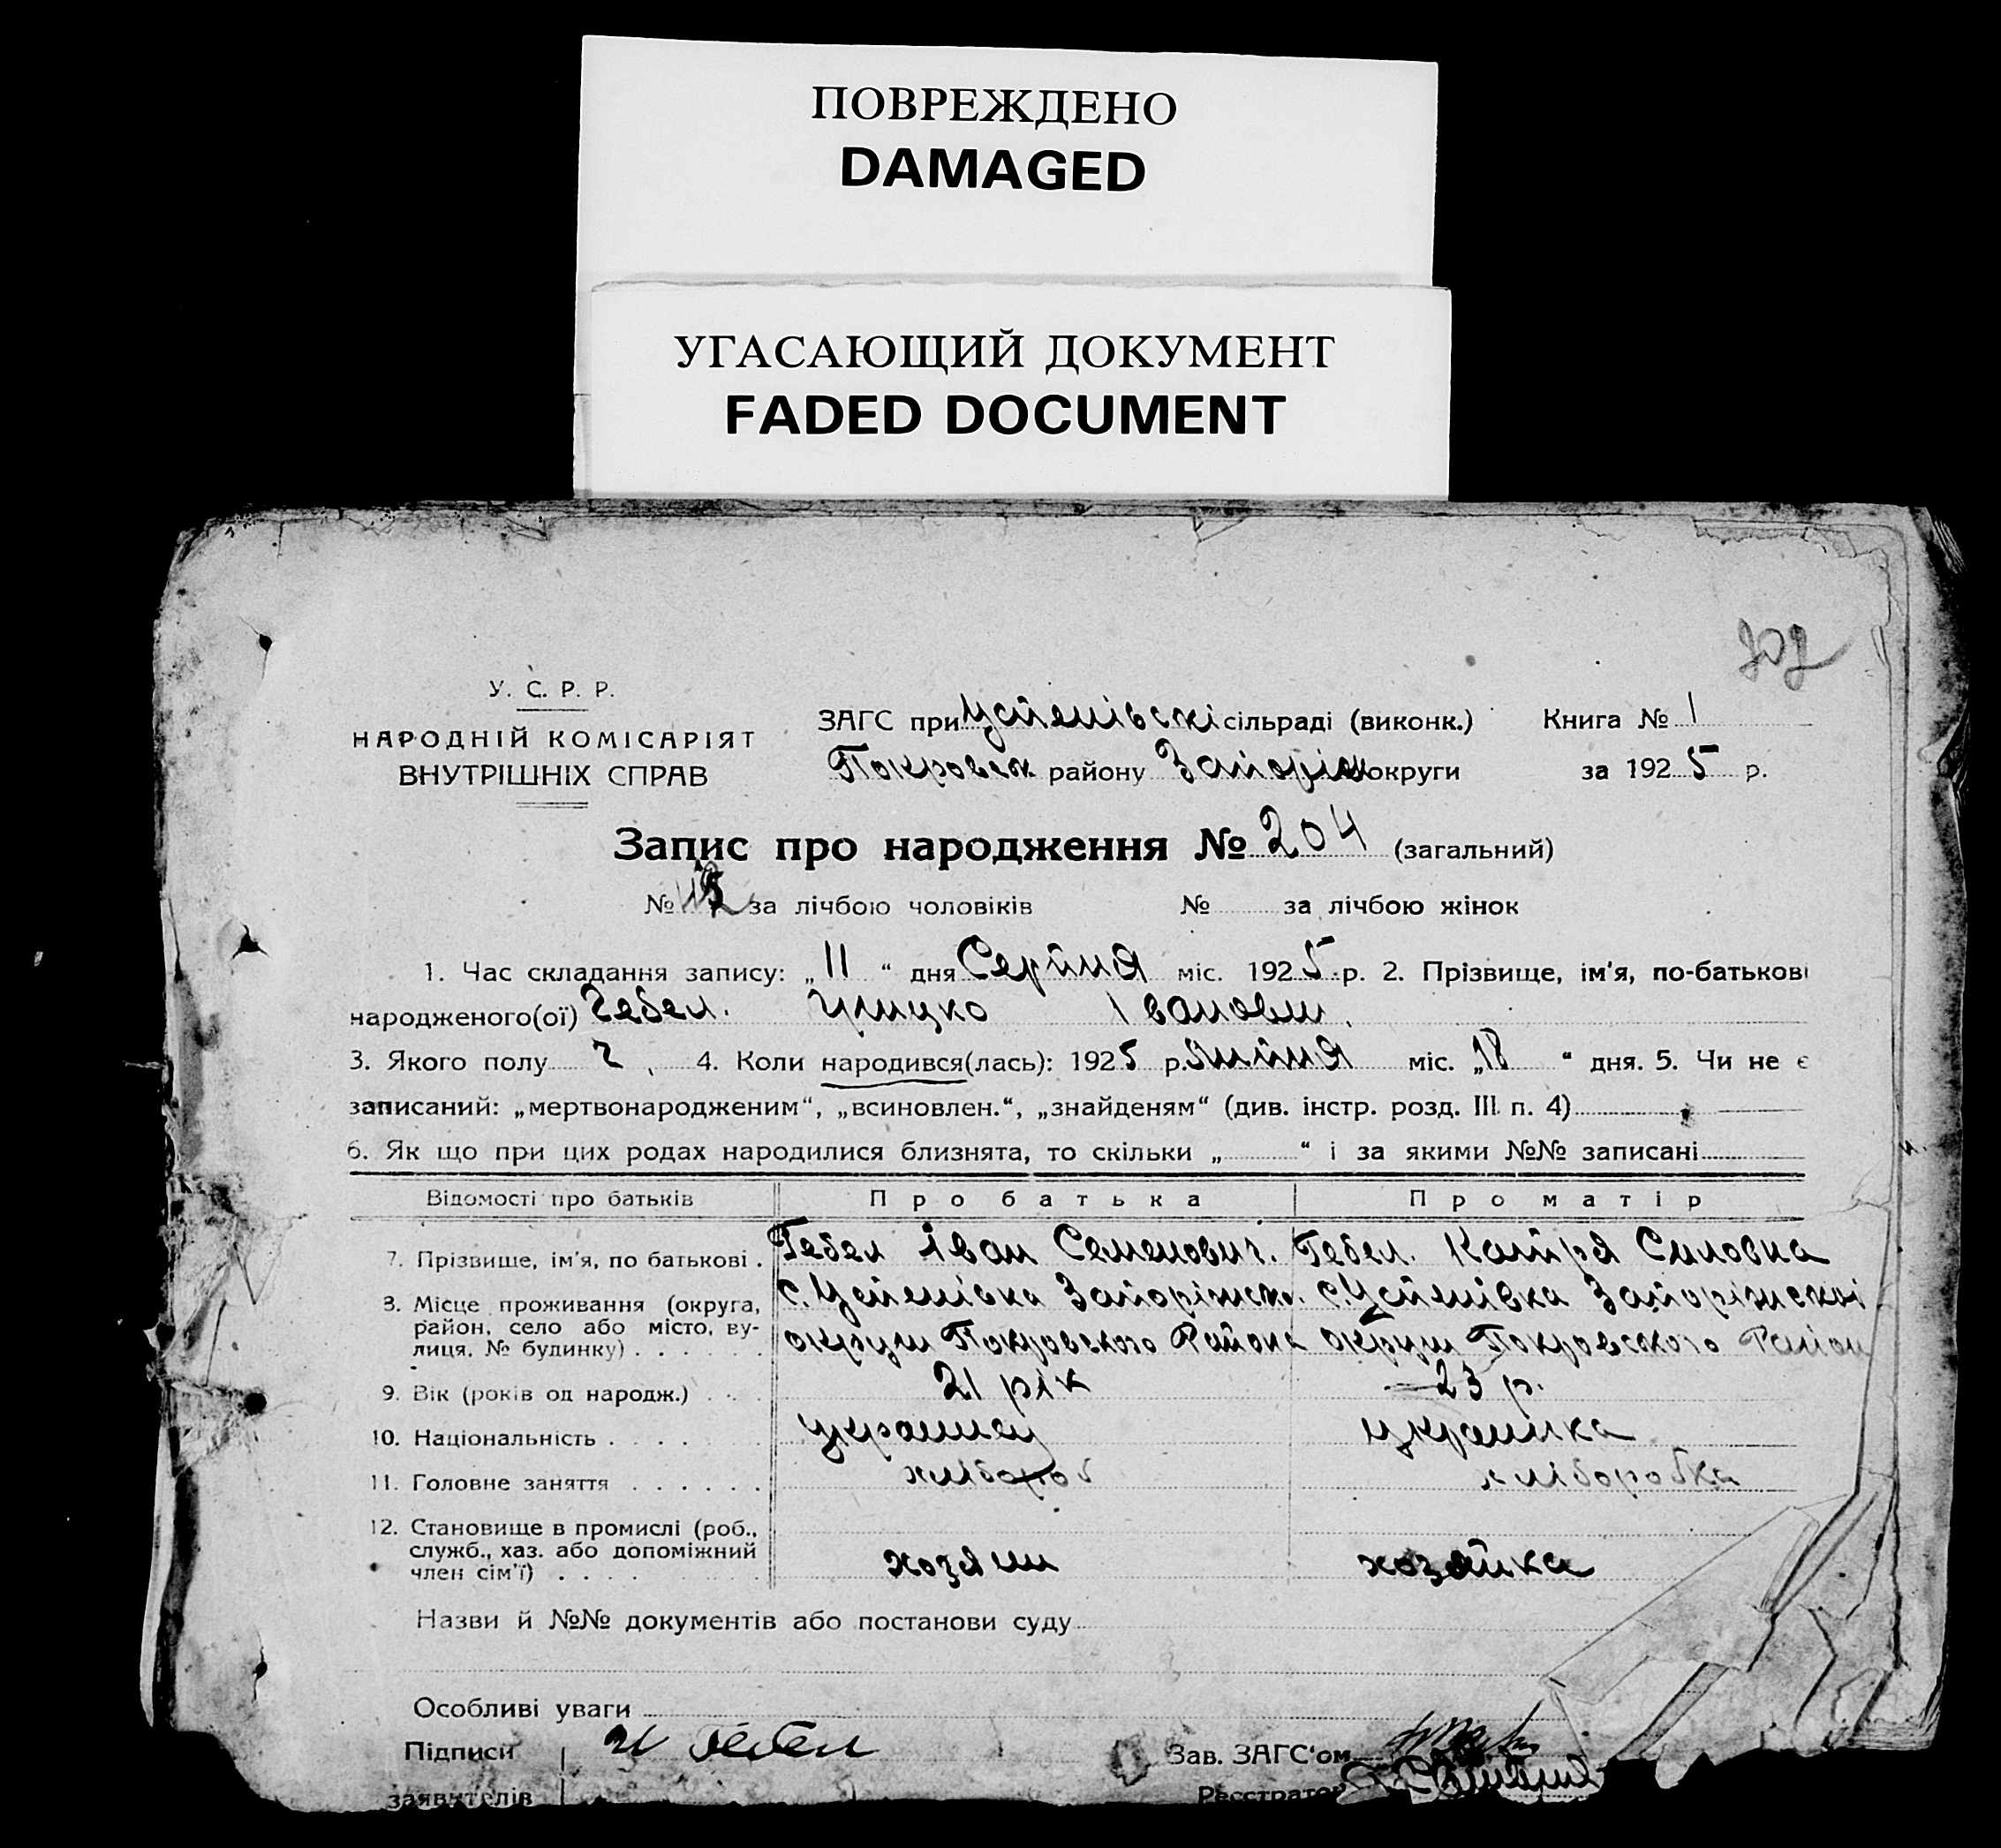 ПОВРЕЖДЕНО
DAMAGED
УГАСАЮЩИЙ ДОКУМЕНТ
FADED DOCUMENT
202
У. С. Р. Р.
НАРОДНІЙ КОМІСАРІЯТ
ВНУТРІШНІХ СПРАВ
ЗАГС при Успенівскі сільраді (виконк.) Книга № 1
Покровск району Запоріж округи за 1925 р.
Запис про народження № 204 (загальний)
№ за лічбою чоловіків № за лічбою жінок
1. Час складання запису: „11“ дня Серпня міс. 1925 р. 2. Прізвище, ім'я, по-батькові
народженого(ої) Гебел. Грицко Івановш.
3. Якого полу ч, 4. Коли народився(лась): 1925 р. Липня міс. „18“ дня. 5. Чи не є
записаний: „мертвонародженим“, „всиновлен.“, „знайденям“ (див. інстр. розд. III п. 4)
6. Як що при цих родах народилися близнята, то скільки „ “ і за якими №№ записані
Відомості про батьків Про батька Про матір
7. Прізвище, ім'я, по батькові . Гебел Іван Семенович. Гебел. Катря Силовна
8. Місце проживання (округа, с. Успенівка Запоріжск. с. Успенівка Запоріжскоі
район, село або місто, ву-
лиця, № будинку) . . . . . . округи Покровського Района округи Покровського Район
9. Вік (років од народж.) . . . 21 рік 23 р.
10. Національність . . . . . . украинец украинка
11. Головне заняття . . . . . . хлібороб хліборобка
12. Становище в промислі (роб.,
служб., хаз. або допоміжний хозяин хозяйка
член сім'ї) . . . .
Назви й №№ документів або постанови суду
Особливі уваги
Підписи И Гебел Зав. ЗАГС'ом
заявителів Реєстратор